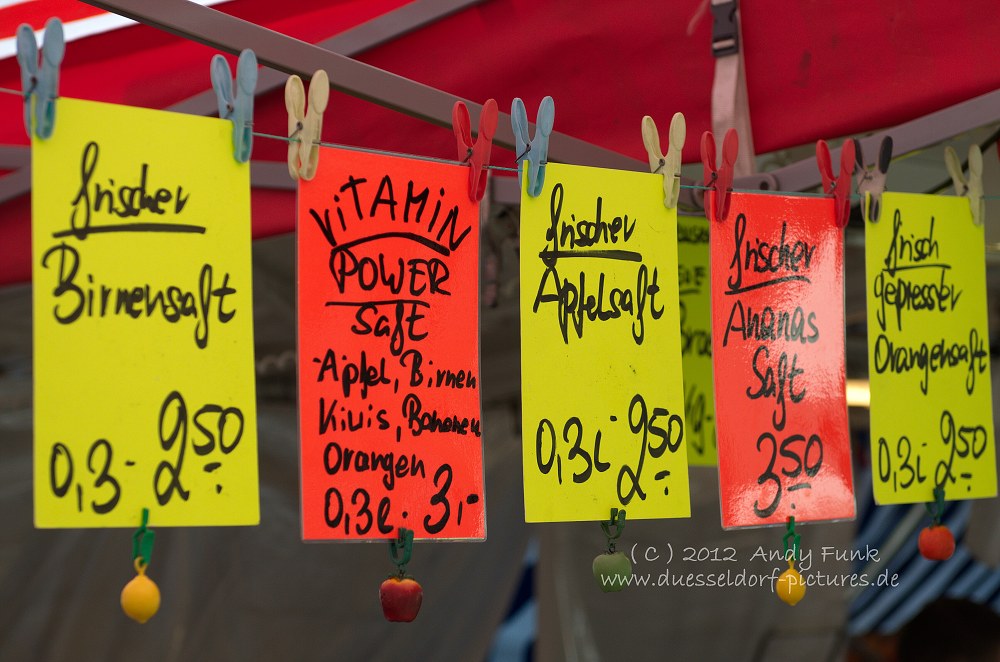 frischer
Birnensaft
0,3- 2,50
ViTAMiN
POWER
Saft
Äpfel, Birnen
Kiwis, Bananen
Orangen
0,3l. 3,-
frischer
Apfelsaft
0,3l 2,50
frischer
Ananas
Saft
3,50
frisch
gepresster
Orangensaft
0,3l 2,50
(C) 2012 Andy Funk
www.duesseldorf-pictures.de